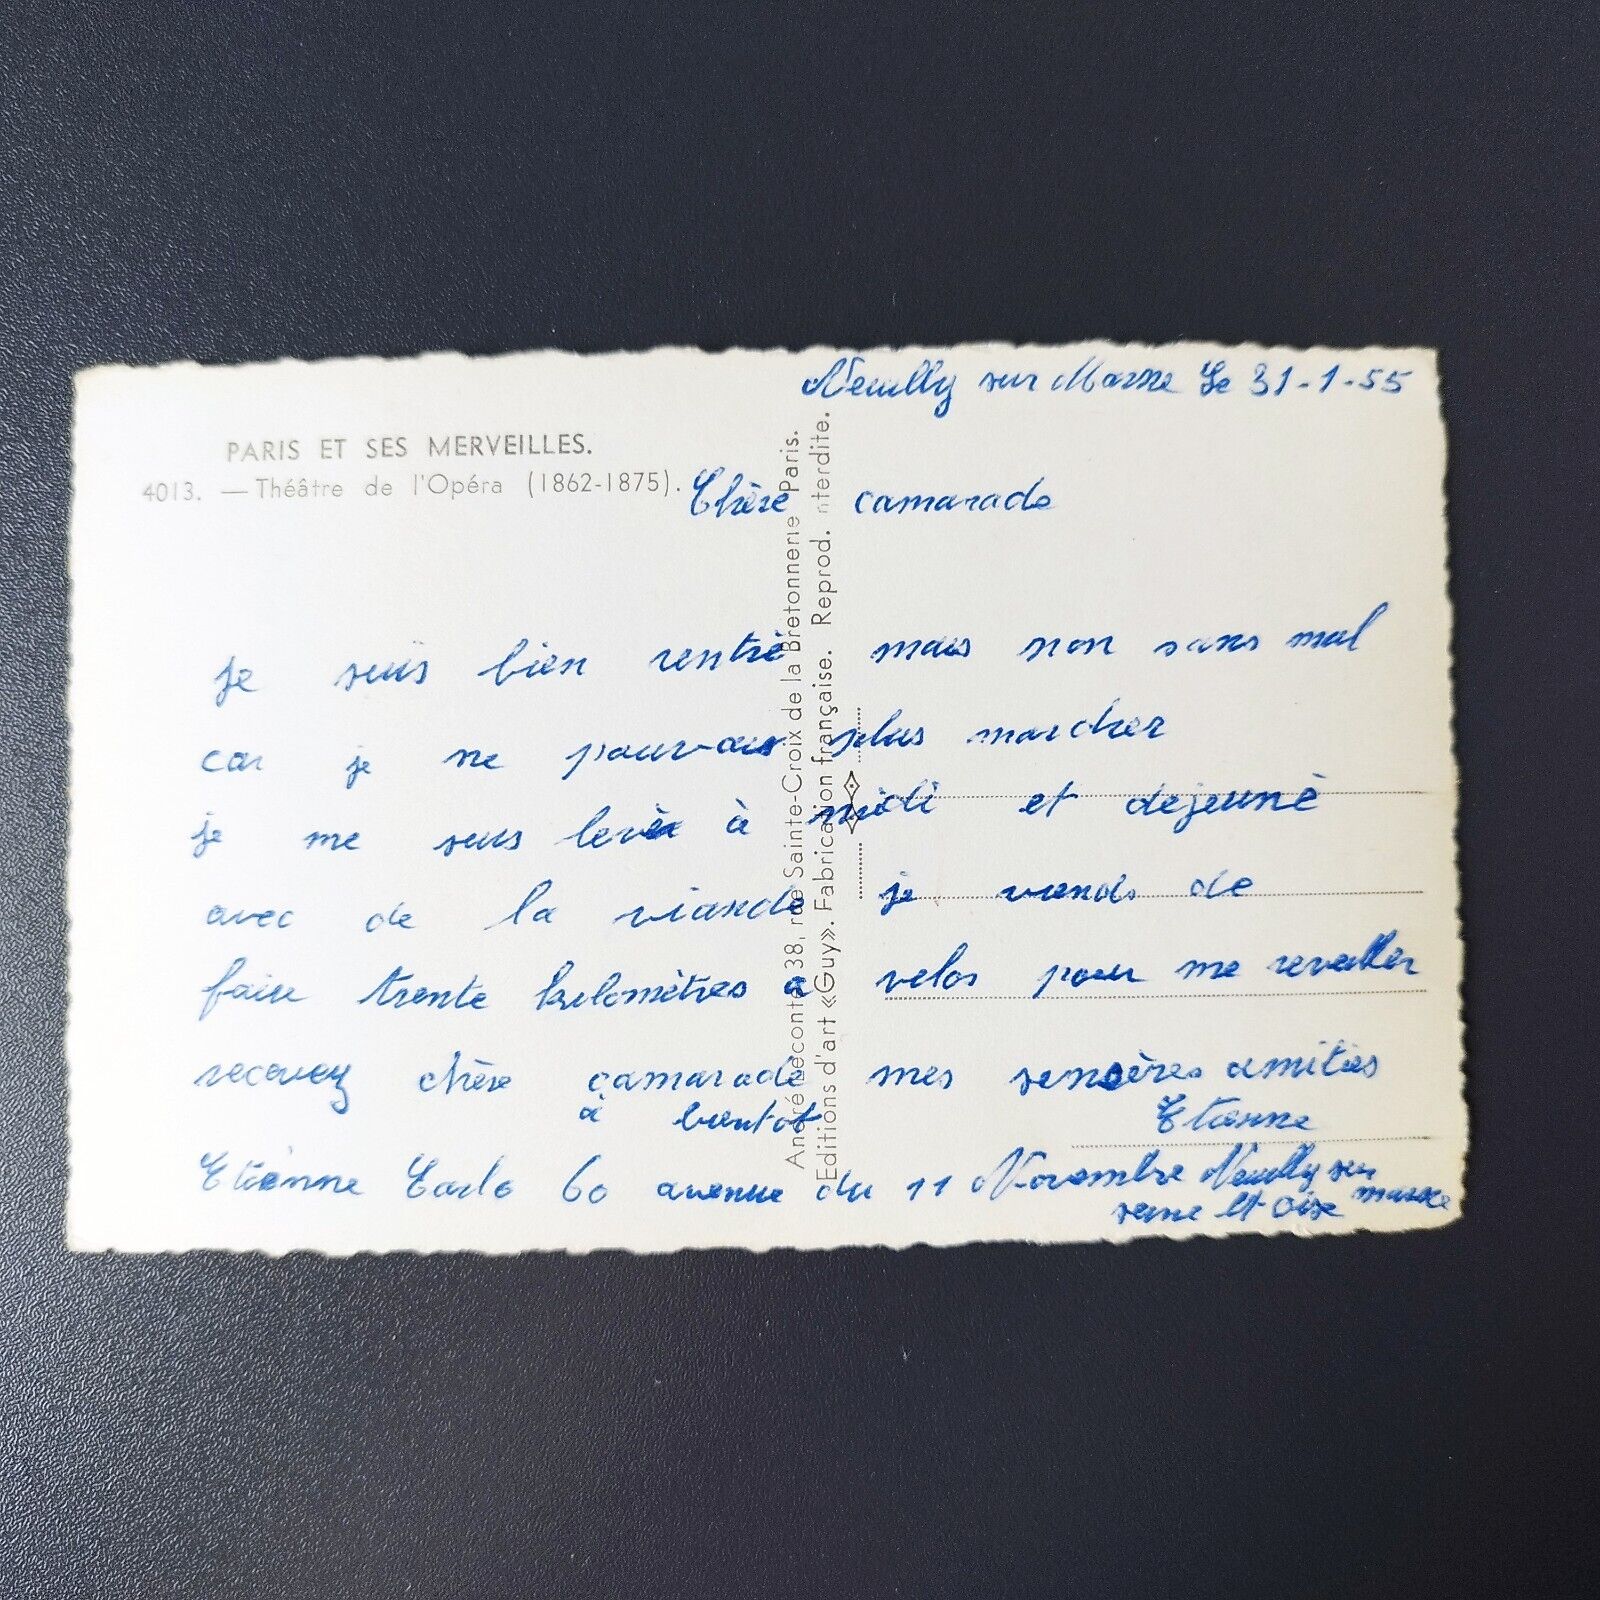 Neuilly sur Marne Le 31-1-55
PARIS ET SES MERVEILLES.
4013. — Théâtre de l'Opéra (1862-1875).
Chère camarade
je suis bien rentré mais non sans mal
car je ne pouvais plus marcher
je me suis levér à midi et dejeuné
avec de la viande je viends de
faire trente kilomètres a velos pour me reveiller
recevez chère camarade mes sencères amitiés
à bientot Etienne
Etiènne Carlo 60 avenue du 11 Novembre Neuilly sur marne
seine et Oise
André Leconte 38, rue Sainte-Croix de la Bretonnerie Paris.
Editions d'art «Guy». Fabrication française. Reprod. nterdite.